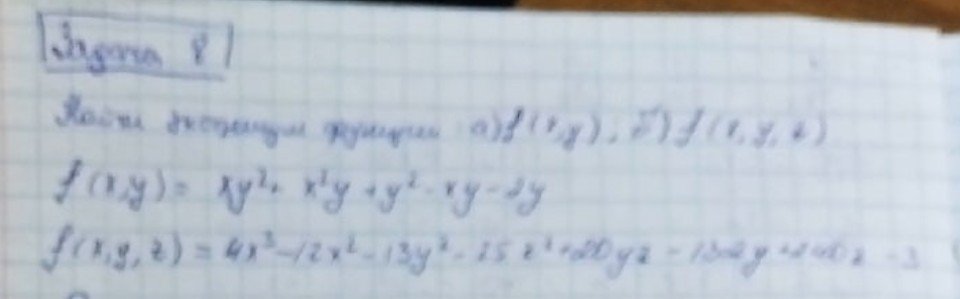 Задача 8
Найти экстремум функции а) f(x,y), б) f(x,y,z)
f(x,y) = xy²+ x²y +y² - xy - 2y
f(x,y,z) = 4x³ -12x² -13y² - 25z² +20yz